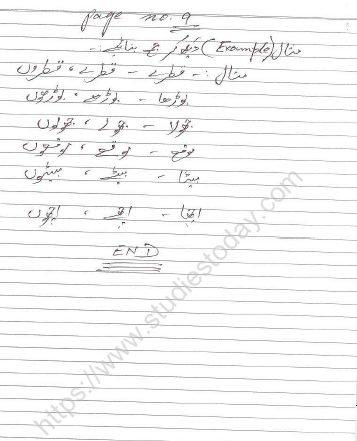 Page no. 9
مثال (Example) دیکھ کر جمع بنائیے :-
مثال :- قطرے - قطرے ، قطروں
بوڑھا - بوڑھے ، بوڑھوں
جھولا - جھولے ، جھولوں
موقع - موقعے ، موقعوں
بیٹا - بیٹے ، بیٹوں
اچھا - اچھے ، اچھوں
END
https://www.studiestoday.com